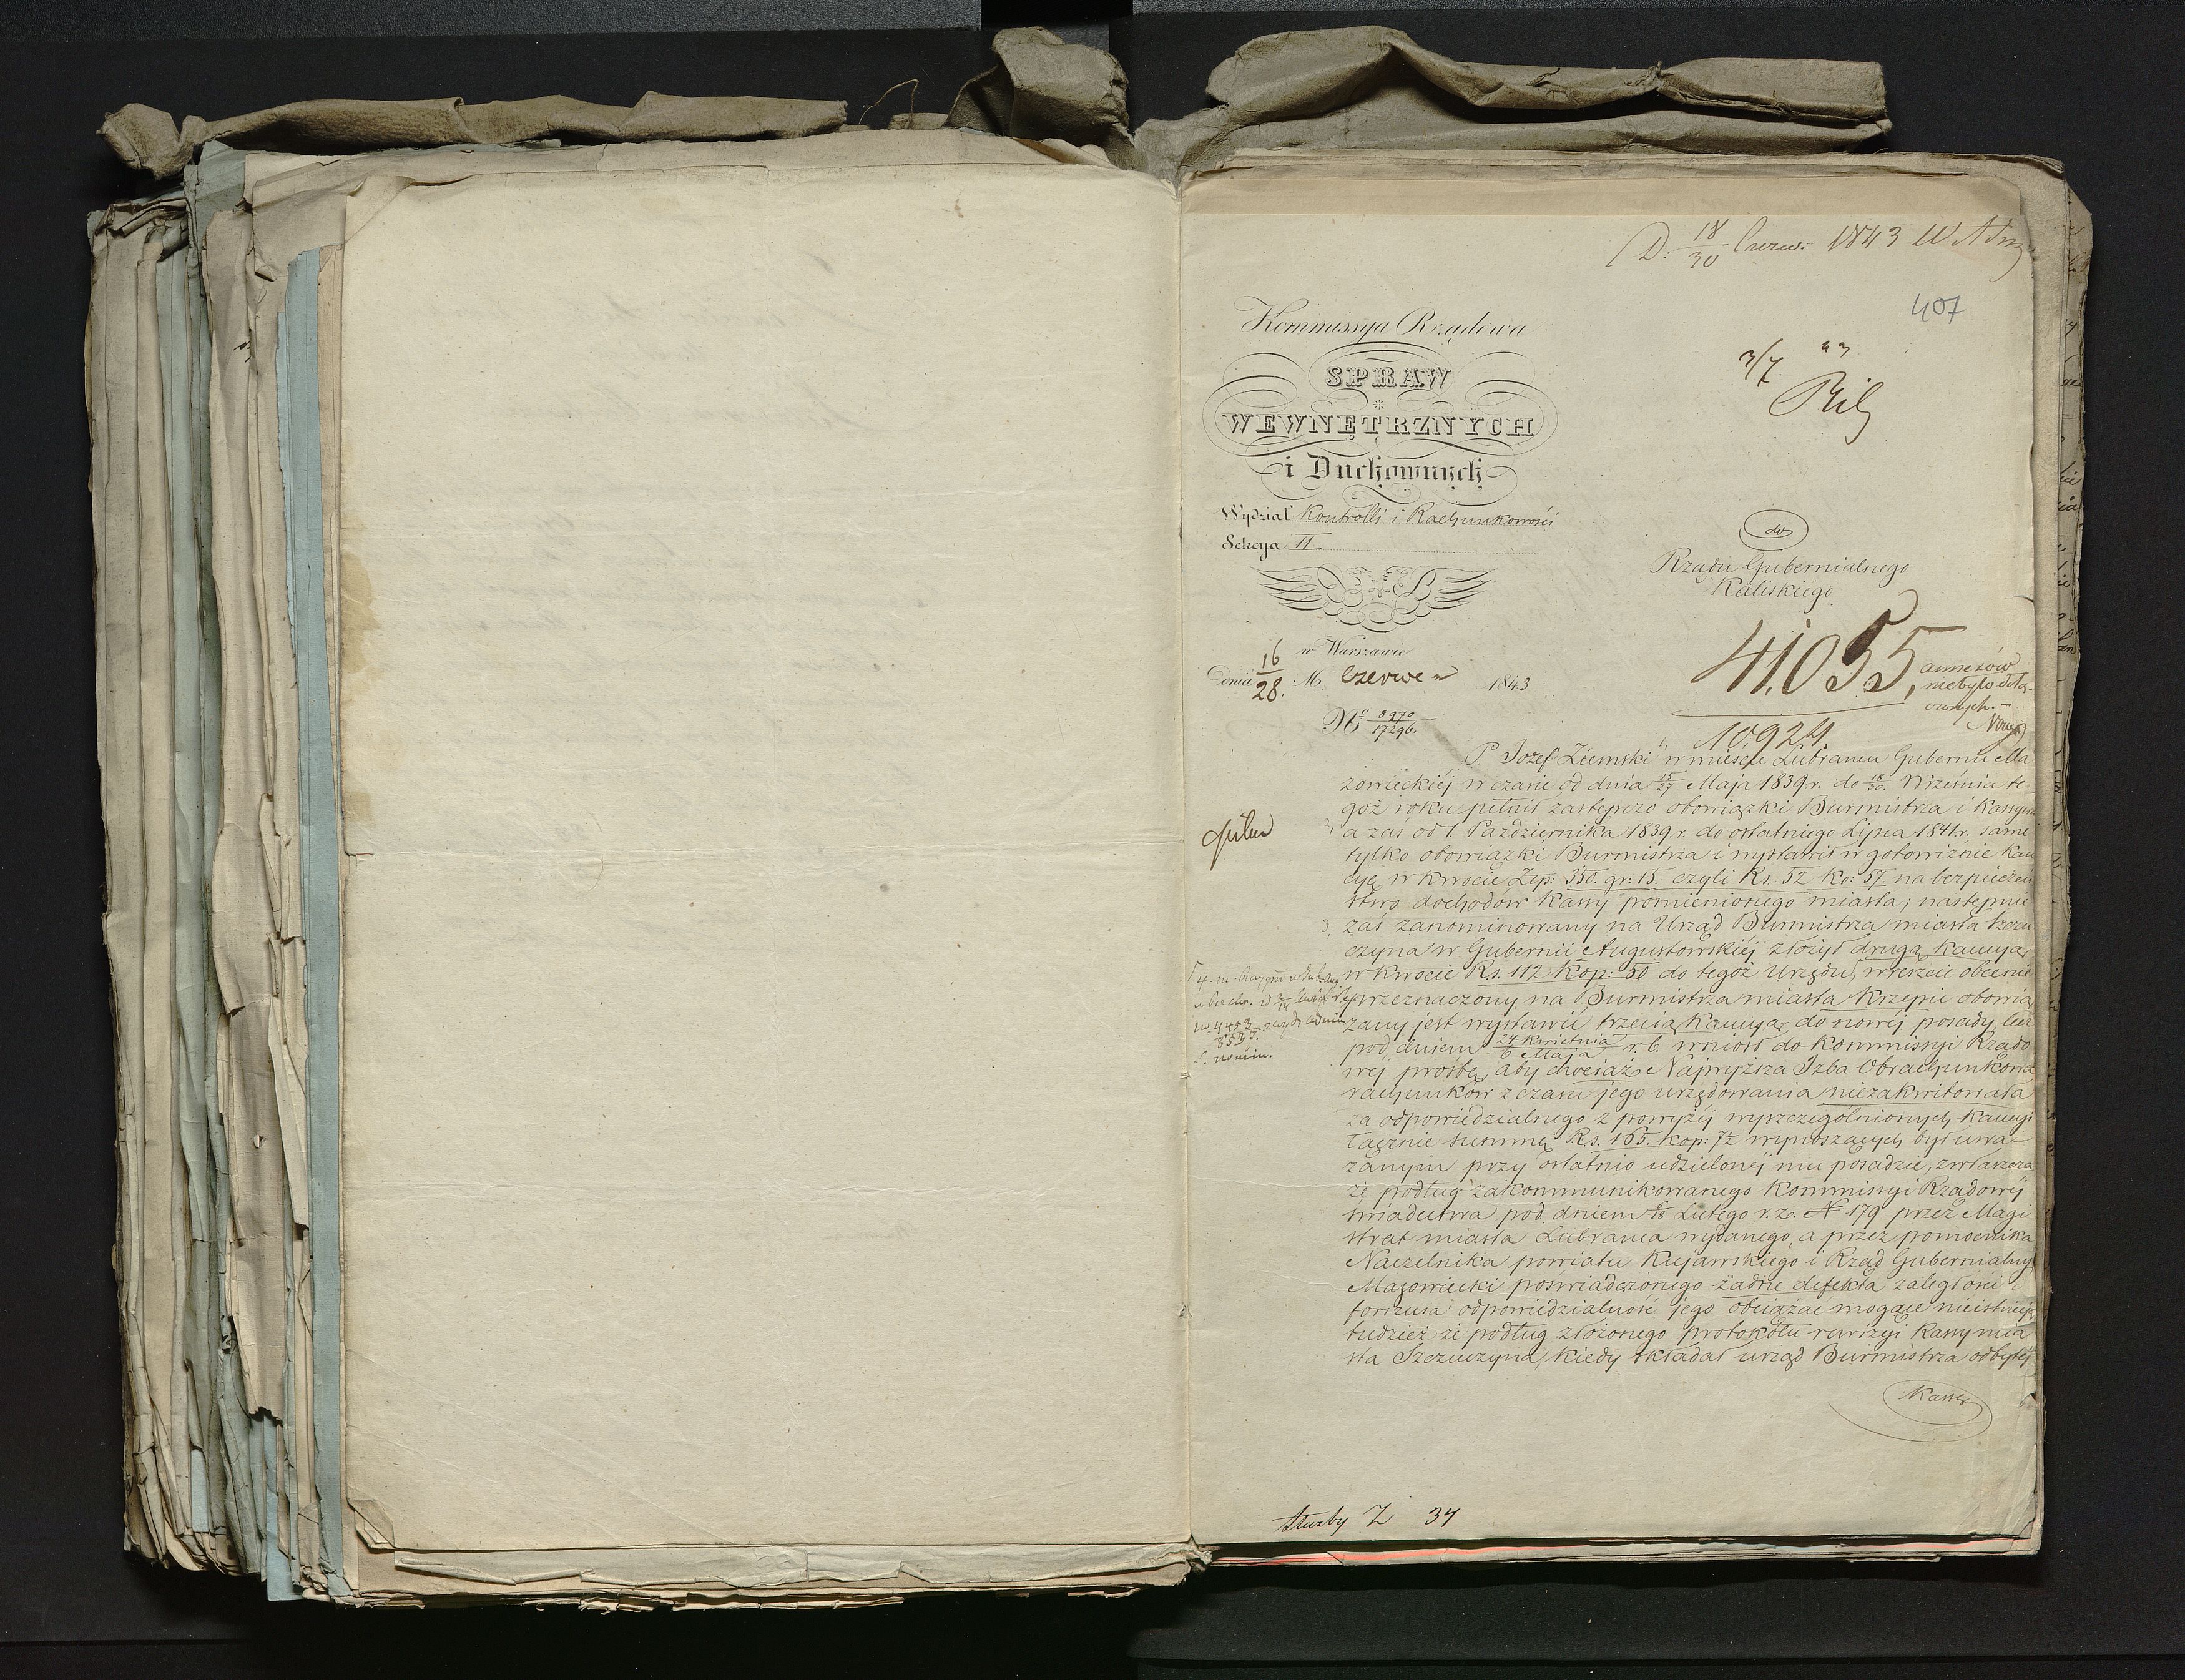 D: 18/30 Czerw: 1843 W. Adm
407
3/7 43
Kommissya Rządowa
SPRAW
WEWNĘTRZNYCH
i Duchownych
Wydział Kontrolli i Rachunkowości
Sekcya II
do
Rządu Gubernialnego
Kaliskiego
w Warszawie
dnia 16/28. M. Czerwca 1843
No 8970/17296.
41,055,
annexów
niebyło dołą-
czonych.-
10924
P. Jozef Ziemski w mieście Lubrancu Gubernii Ma
zowieckiéj w czasie od dnia 15/27 Maja 1839.r. do 18/30. Września te-
goż roku pełnił zastępczo obowiązki Burmistrza i Kassyera
2, a zaś od 1. Października 1839.r. do ostatniego Lipca 1841.r. same
tylko obowiązki Burmistrza i wystawił w gotowiźnie Kau
cyę w kwocie Złp: 350. gr: 15. czyli Rs. 52 Ko: 57. na bezpieczeń
stwo dochodów Kassy pomienionego miasta; następnie
3, zaś zanominowany na Urząd Burmistrza miasta Szczu
czyna w Gubernii Augustowskiéj złożył drugą Kaucyą
w kwocie Rs. 112 Kop: 50 do tegoż Urzędu, wreszcie obecnie
przeznaczony na Burmistrza miasta Krzepic obowią
zany jest wystawić trzecią Kaucyą do nowéj posady, lecz
pod dniem 24 Kwietnia/6 Maja r.b. wniósł do Kommissyi Rządo
wej prośbę, aby chociaż Najwyższa Izba Obrachunkowa
rachunków z czasu jego urzędowania niezakwitowała
za odpowiedzialnego z powyżéj wyszczególnionych Kaucyi
łącznie summę Rs. 165. Kop: 7½ wynoszących był uwa
żanym przy ostatnio udzielonéj mu posadzie, zwłaszcza
że podług zakommunikowanego Kommissyi Rządowéj
świadectwa pod dniem 6/18 Lutego r.z. N 179 przez Magi
strat miasta Lubranca wydanego, a przez pomocnika
Naczelnika powiatu Kujawskiego i Rząd Gubernialny
Mazowiecki poświadczonego żadne defekta, zaległości i
forszusa odpowiedzialność jego obciążać mogące nieistnieją
tudzież że podług złożonego protokółu rewizyi Kassy mia
sta Szczuczyna, kiedy składał urząd Burmistrza odbytéj
Kassę
Służby Z 34